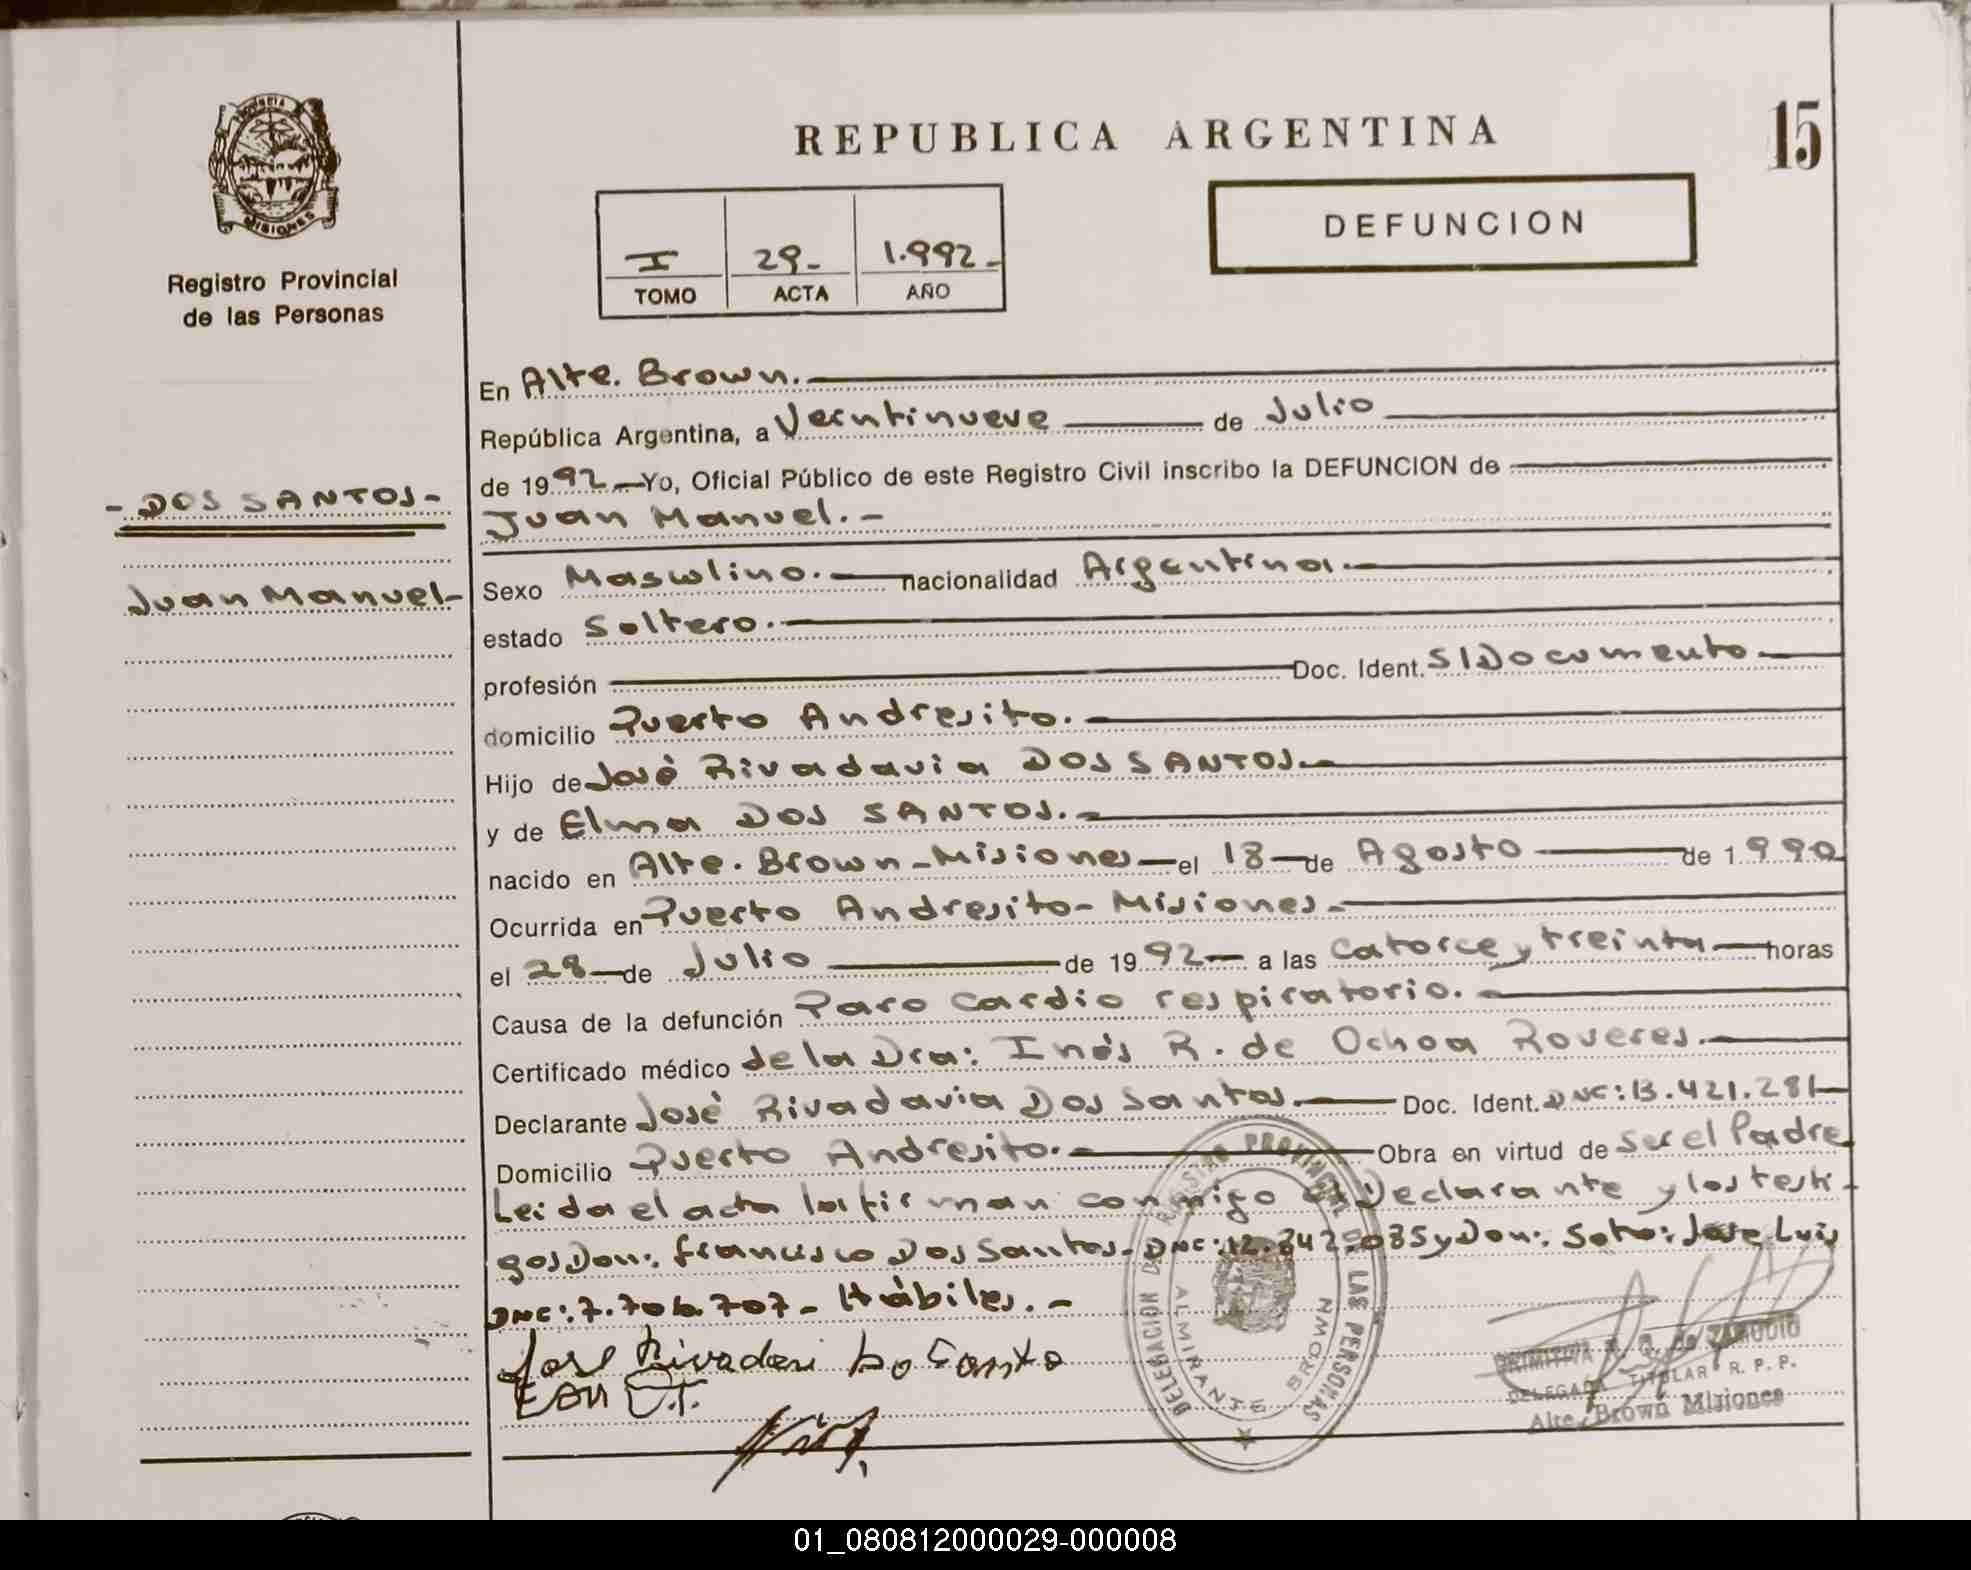 REPUBLICA ARGENTINA
15
PROVINCIA
MISIONES
Registro Provincial
de las Personas
I 29- 1.992-
TOMO ACTA AÑO
DEFUNCION
- DOS SANTOS -
Juan Manuel-
En Alte. Brown.
República Argentina, a Veintinueve de Julio
de 1992 Yo, Oficial Público de este Registro Civil inscribo la DEFUNCION de
Juan Manuel.-
Sexo Masculino. nacionalidad Argentina.
estado Soltero.
profesión Doc. Ident. S/Documento
domicilio Puerto Andresito.
Hijo de José Rivadavia DOS SANTOS.
y de Elma DOS SANTOS.
nacido en Alte. Brown-Misiones el 18 de Agosto de 1990
Ocurrida en Puerto Andresito-Misiones.
el 28 de Julio de 1992 a las Catorce y treinta horas
Causa de la defunción Paro Cardio respiratorio.
Certificado médico de la Dra: Inés R. de Ochoa Roveres.
Declarante José Rivadavia Dos Santos. Doc. Ident. DNC: 13.421.281
Domicilio Puerto Andresito. Obra en virtud de Ser el Padre
Leida el acta la firman conmigo el Declarante y los testi-
gos Don: Francisco Dos Santos- DNC: 12.842.035 y Don: Soto: Jose Luis
DNC: 7.706.707- Hábiles.-
DELEGACION DE REGISTRO PROVINCIAL DE LAS PERSONAS
ALMIRANTE BROWN
PRIMITIVA R. G. de ZAMUDIO
DELEGADA TITULAR R. P. P.
Alte. Brown Misiones
01_080812000029-000008